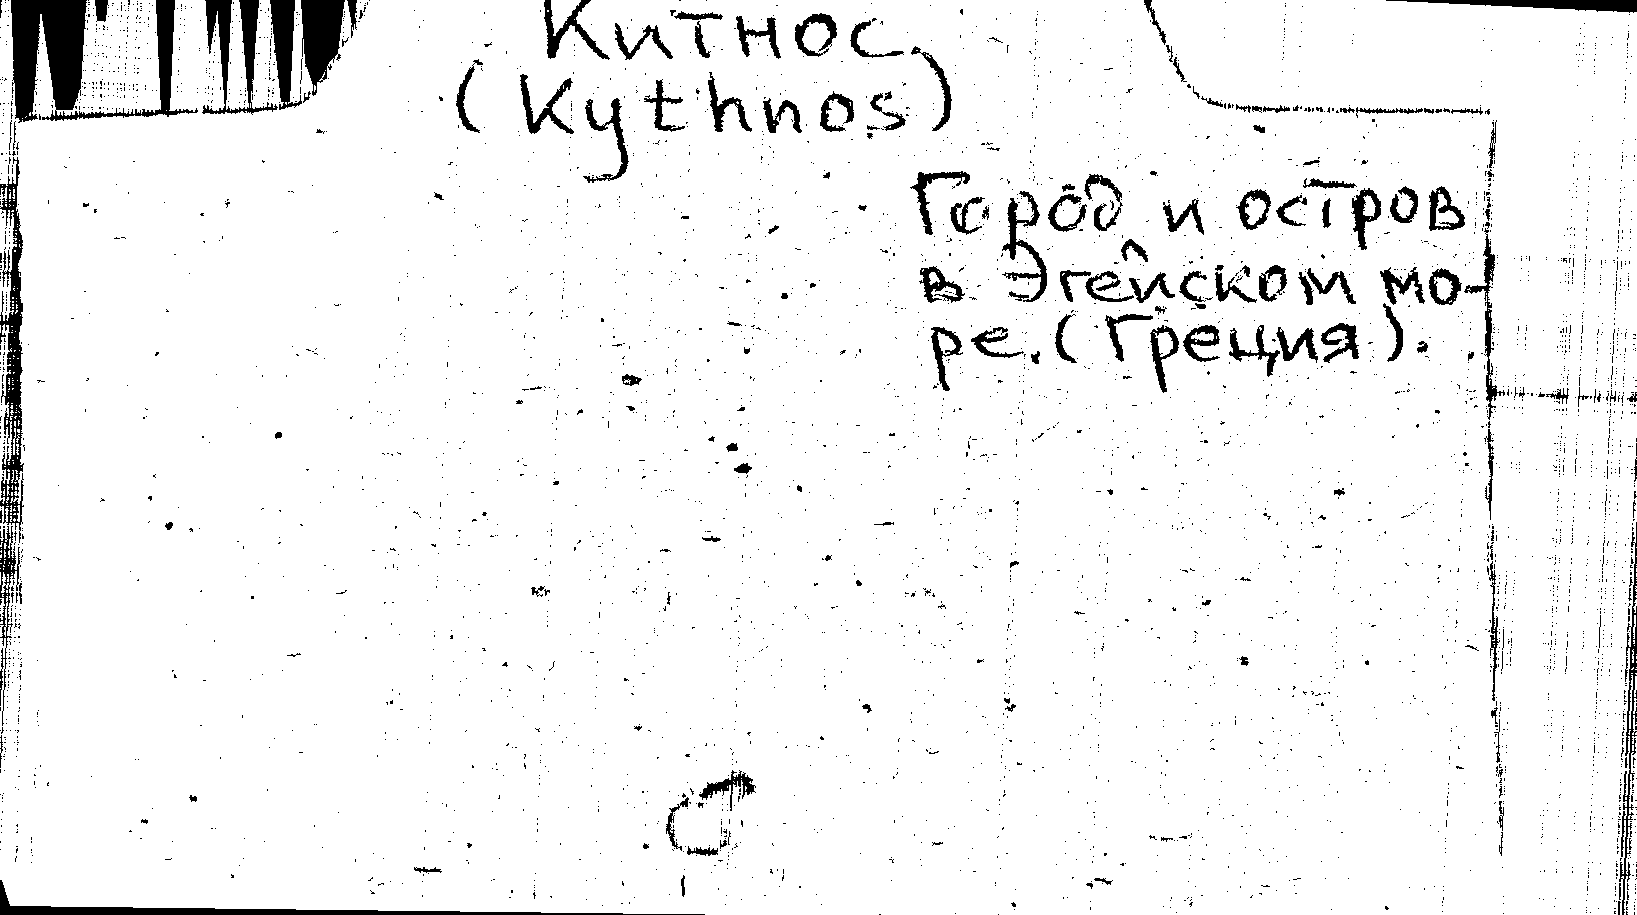 Китнос
(Kythnos)
Город и остров
в Эгейском мо-
ре. (Греция).